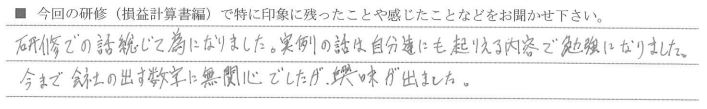 ■ 今回の研修（損益計算書編）で特に印象に残ったことや感じたことなどをお聞かせ下さい。
研修での話総じて為になりました。実例の話は自分達にも起りえる内容で勉強になりました。
今まで会社の出す数字に無関心でしたが、興味が出ました。